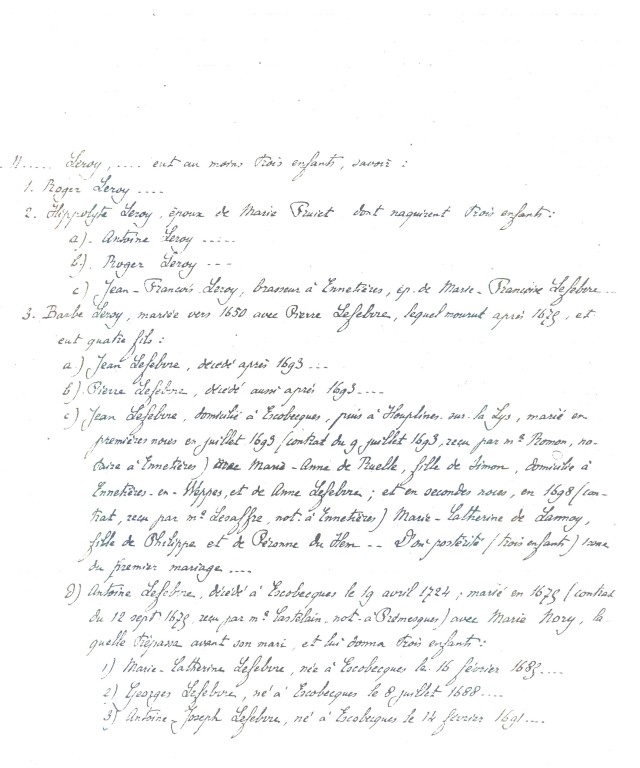 N..... Leroy, .... eut au moins trois enfants, savoir :
1. Roger Leroy ....
2. Hippolyte Leroy, époux de Marie Pruiet dont naquirent trois enfants :
a). Antoine Leroy .....
b). Roger Leroy ...
c) Jean-François Leroy, brasseur à Ennetières, ép. de Marie-Françoise Lefebvre ...
3. Barbe Leroy, mariée vers 1650 avec Pierre Lefebvre, lequel mourut après 1675, et
eut quatre fils :
a) Jean Lefebvre, décédé après 1693 ...
b) Pierre Lefebvre, décédé aussi après 1693 ....
c) Jean Lefebvre, domicilié à Escobecques, puis à Houplines-sur-la Lys, marié en
premières noces en juillet 1693 (contrat du 9 juillet 1693, reçu par mᵉ Romon, no-
taire à Ennetières) avec Marie-Anne de Ruelle, fille de Simon, domiciliée à
Ennetières-en-Weppes, et de Anne Lefebvre ; et en secondes noces, en 1698 (con-
trat, reçu par mᵉ Lesaffre, not. à Ennetières) Marie-Catherine de Lannoy,
fille de Philippe et de Péronne du Hem -- D'où postérité (trois enfants)
du premier mariage ....
d) Antoine Lefebvre, décédé à Escobecques le 19 avril 1724 ; marié en 1675 (contrat
du 12 sept 1675, reçu par mᵉ Castelain, not. à Prémesques) avec Marie Nory, la-
quelle trépassa avant son mari, et lui donna trois enfants :
1) Marie-Catherine Lefebvre, née à Escobecques le 16 février 1685 ....
2) Georges Lefebvre, né à Escobecques le 8 juillet 1688 ....
3) Antoine-Joseph Lefebvre, né à Escobecques le 14 février 1691 ....